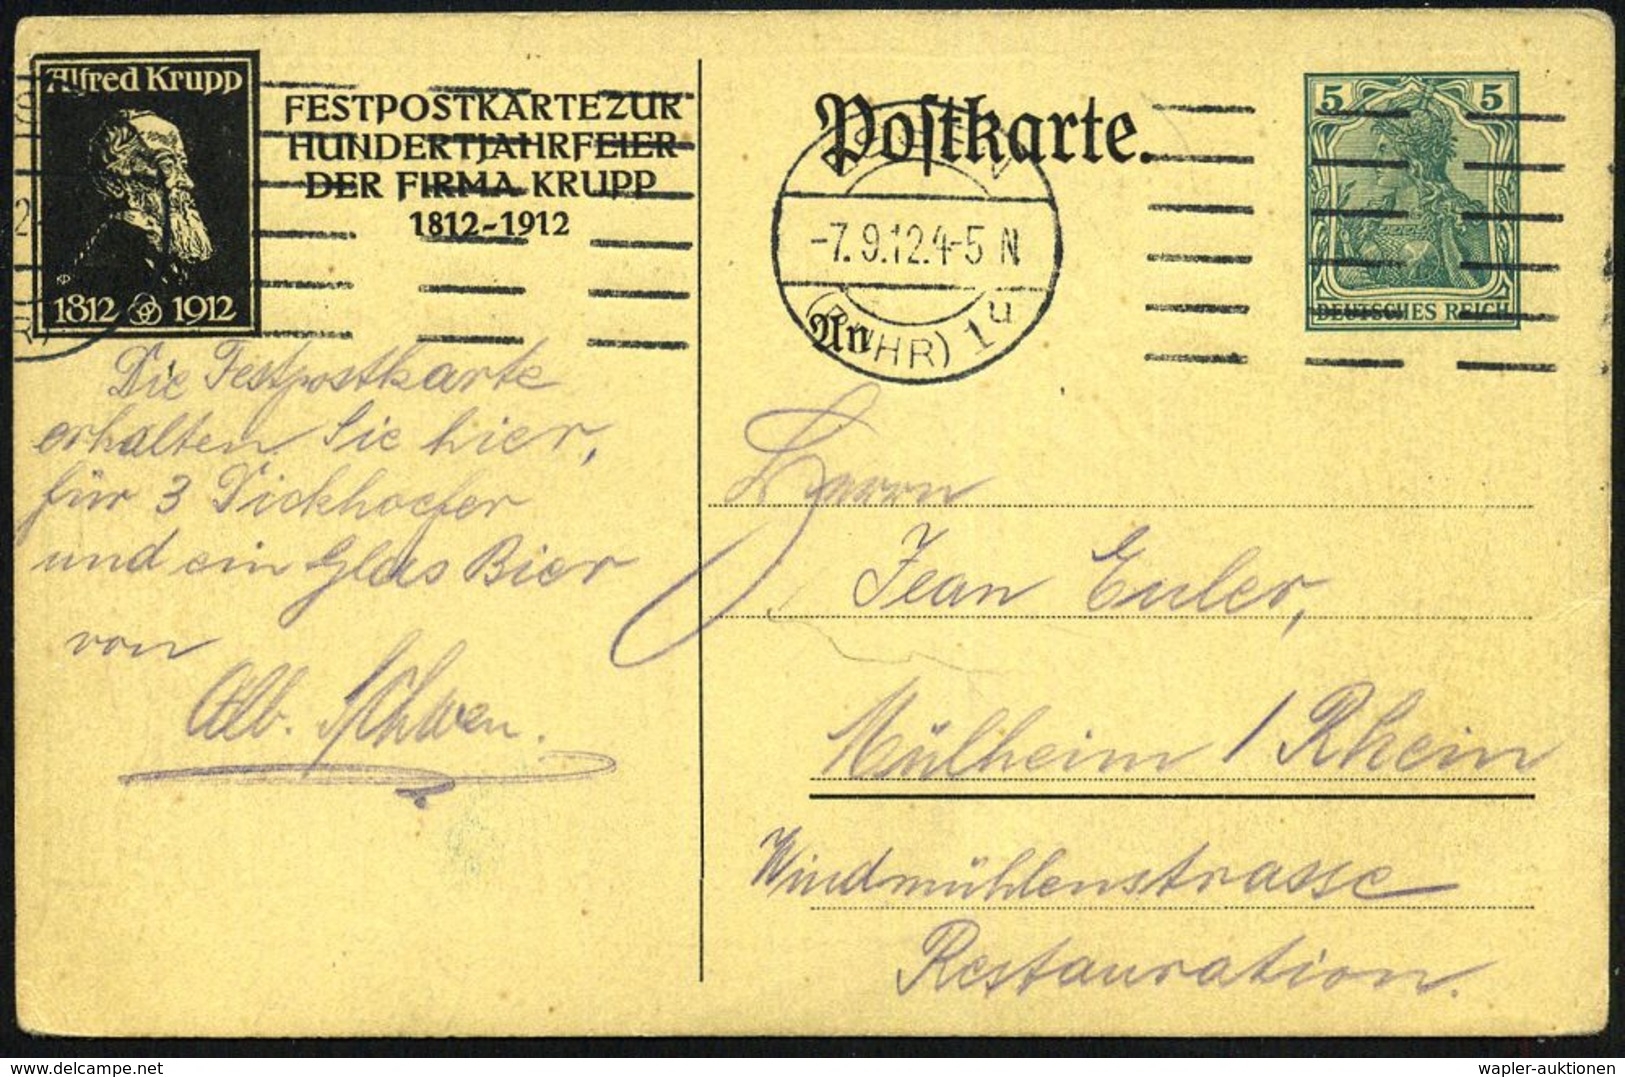 Alfred Krupp
1812 1912
FESTPOSTKARTE ZUR
HUNDERTJAHRFEIER
DER FIRMA KRUPP
1812-1912
Postkarte.
-7.9.12.4-5 N
(RUHR) 1u
An
5 5
DEUTSCHES REICH
Die Festpostkarte
erhalten Sie hier,
für 3 Dickhoefer
und ein Glas Bier
von
Alb.
Herrn
Jean Euler,
Mülheim / Rhein
Windmühlenstrasse
Restauration.
wapler-auktionen